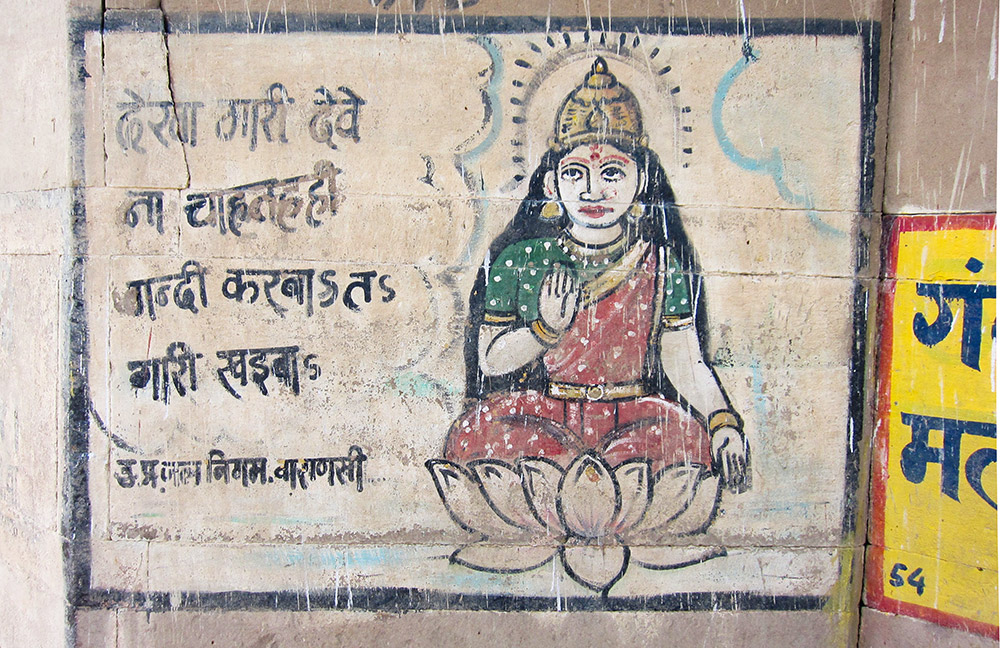 देखा गारी देवे
ना चाहत हही
गन्दी करबाऽ तऽ
गारी खइबाऽ
उ.प्र.जल निगम.वाराणसी....
54